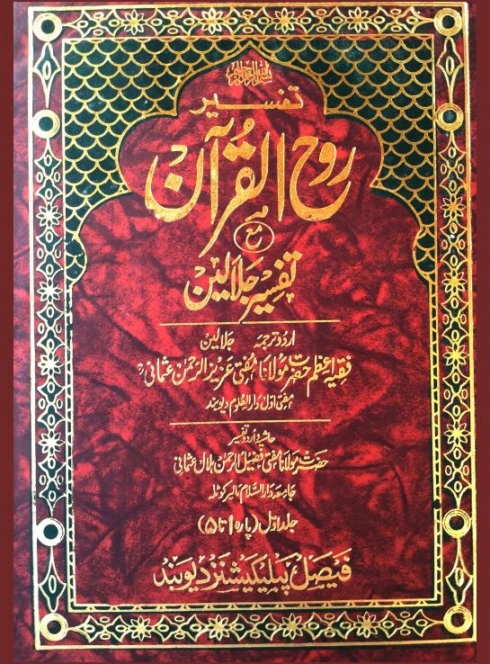 بسم اللہ الرحمن الرحیم
تفسیر
روح القرآن
مع
تفسیر جلالین
اردو ترجمہ جلالین
فقیہ اعظم حضرت مولانا مفتی عزیز الرحمن عثمانیؒ
مفتی اول دارالعلوم دیوبند
حاشیہ و اردو تفسیر
حضرت مولانا مفتی فضیل الرحمن ہلال عثمانی
جامعہ دارالسلام مالیرکوٹلہ
جلد اول (پارہ ۱ تا ۵)
فیصل پبلیکیشنز دیوبند